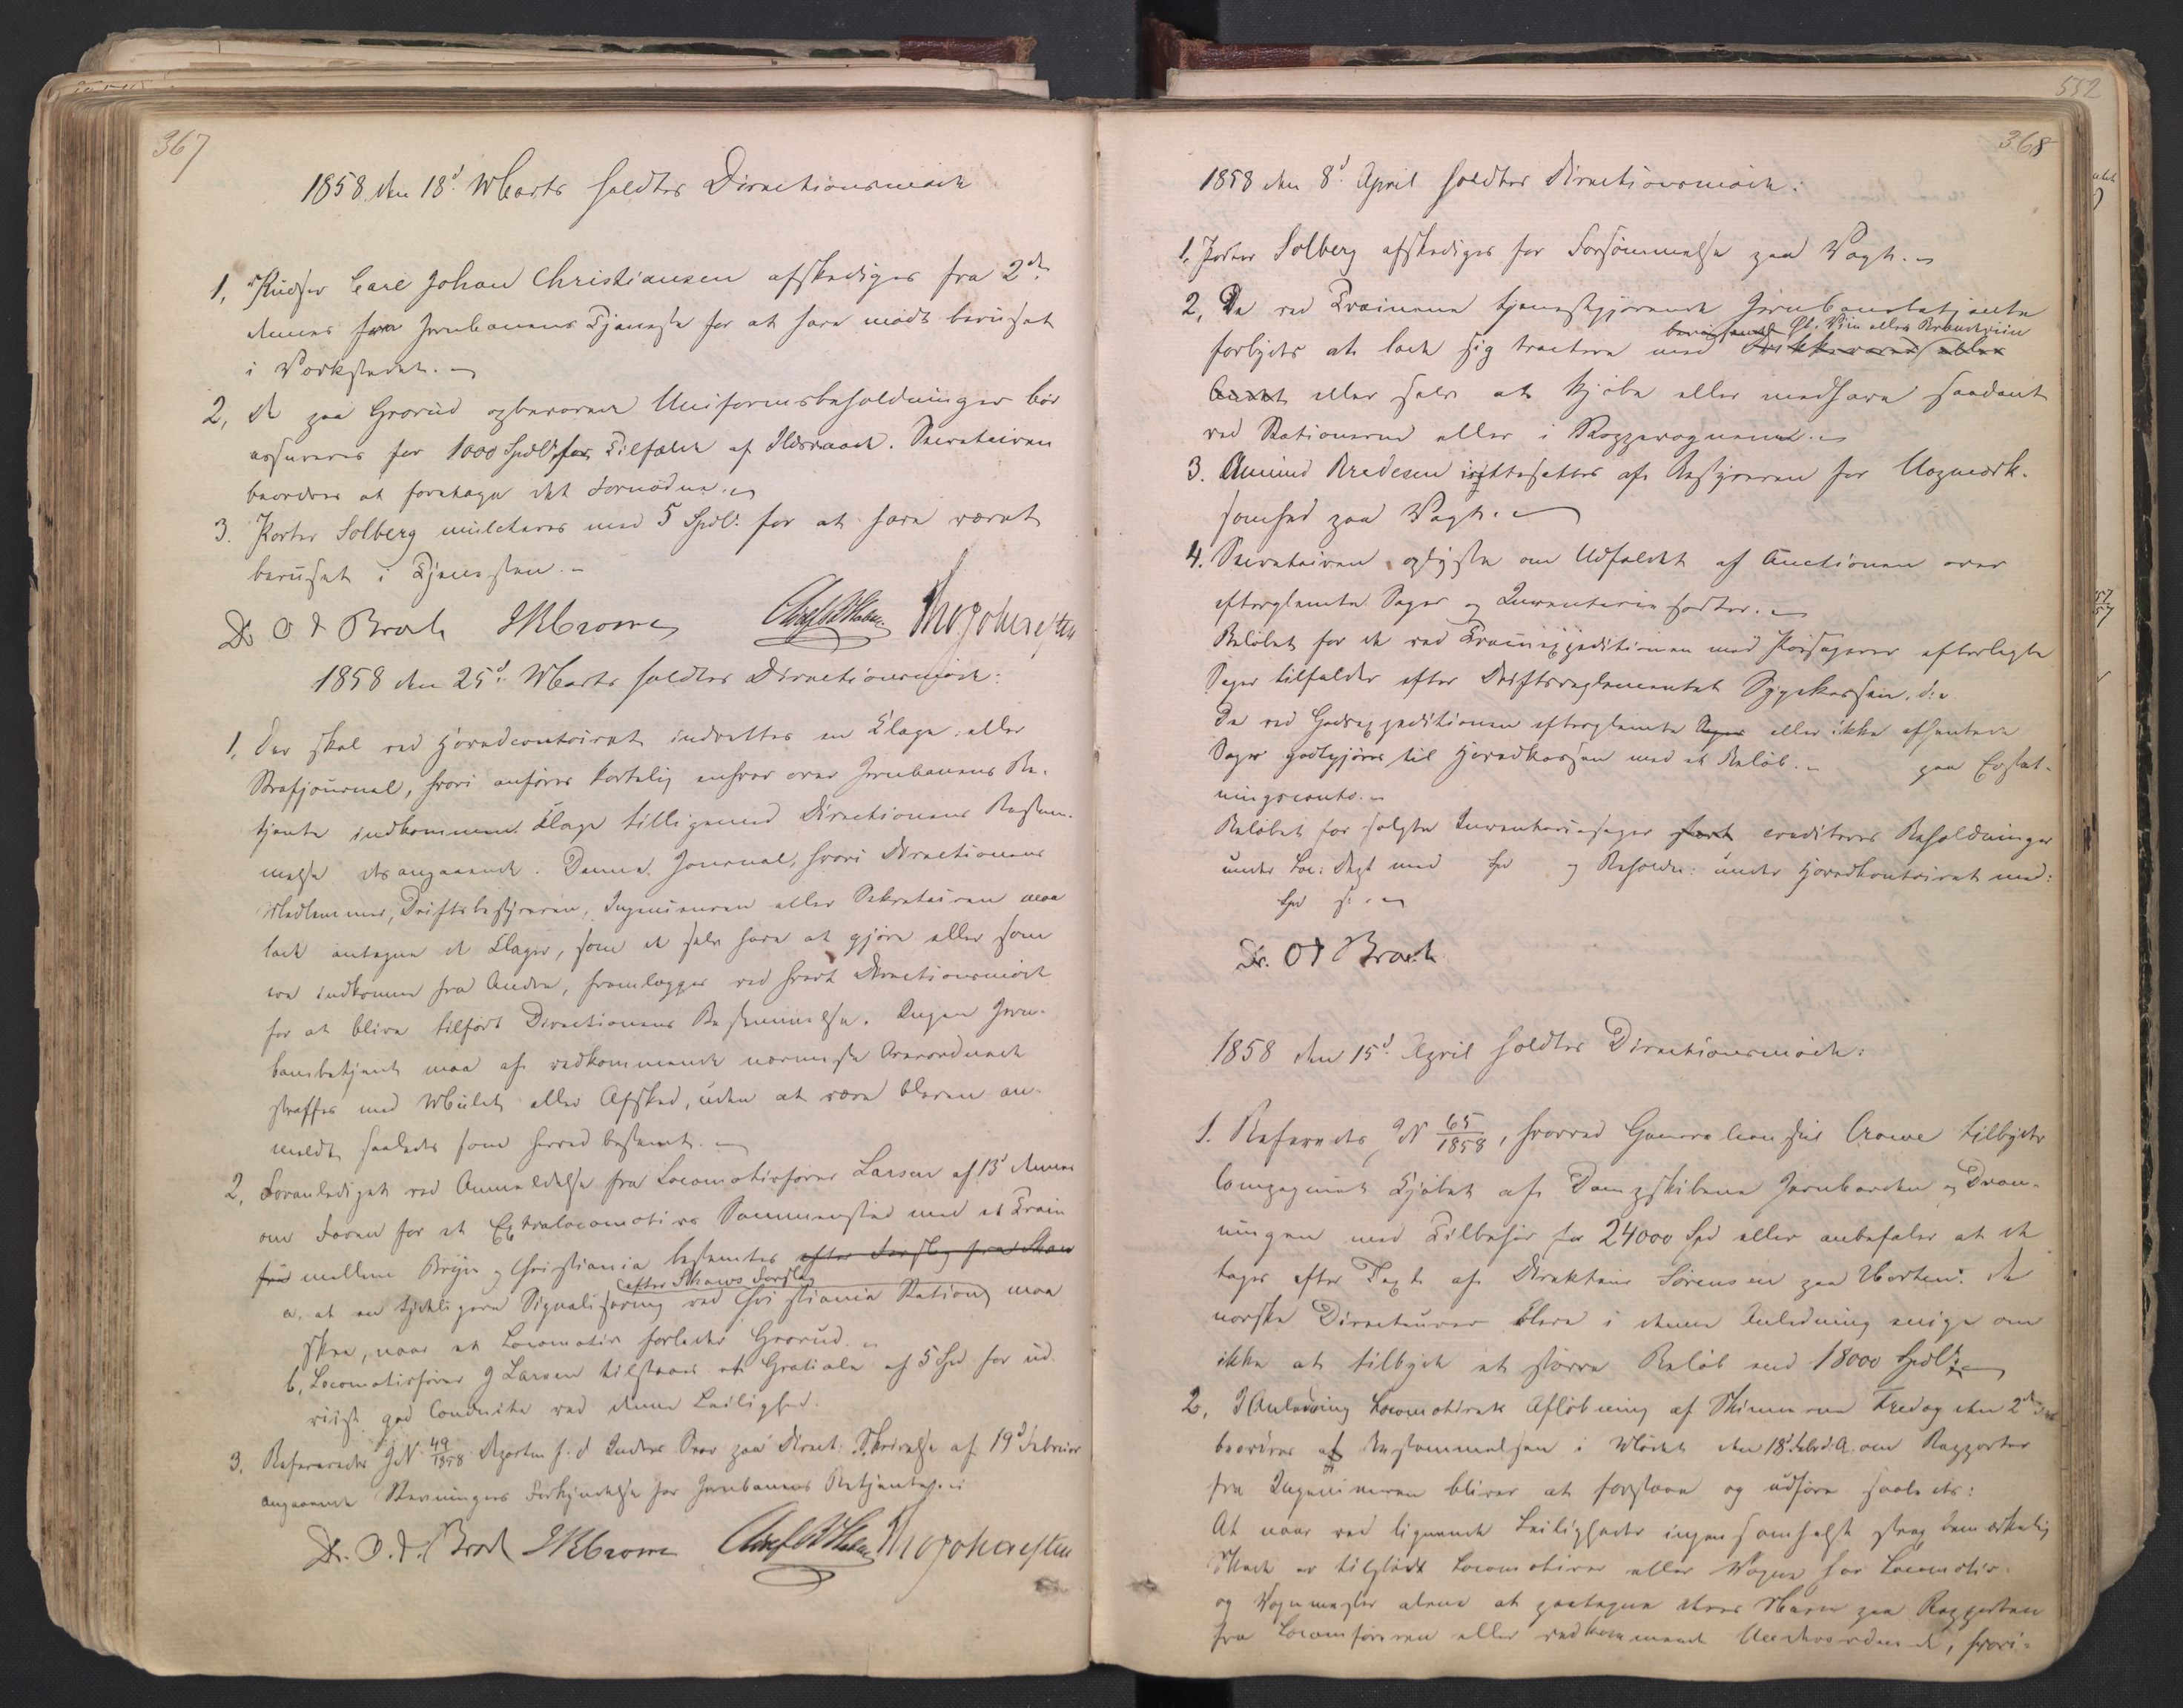 367
1858 den 18d Marts holdtes Directionsmöde
1, Pudser Carl Johan Christiansen afskediges fra 2den
dennes fra Jernbanens Tjeneste for at have mödt beruset
i Verkstedet.
2, De paa Grorud opbevarede Uniformsbeholdninger bör
assureres for 1000 Spdl. for Tilfælde af Ildsvaade. Secretairen
beordres at foretage det Fornödne.
3. Porter Solberg mulcteres med 5 Spdl. for at have været
beruset i Tjenesten.
Dr O J Broch JRCrowe Tho Johannesen
1858 den 25d Marts holdtes Directionsmöde:
1, Der skal ved Hovedcontoiret indrettes en Klage- eller
Strafjournal, hvori anföres kortelig enhver over Jernbanens Be-
tjente indkommen Klage tilligemed Directionens Bestem-
melse desangaaende. Denne Journal, hvori Directionens
Medlemmer, Driftsbestyreren, Ingenieuren eller Sekretairen maa
lade antegne de Klager, som de selv have at gjöre eller som
ere indkomne fra Andre, fremlægges ved hvert Directionsmöde
for at blive tilfört Directionens Bestemmelse. Ingen Jern-
banebetjent maa af vedkommende nærmeste Overordnede
straffes med Mulct eller Afsked, uden at være bleven an-
meldt saaledes som herved bestemt.
2, Foranlediget ved Anmeldelse fra Locomotivförer Larsen af 13d dennes
om Faren for et Extralocomotivs Sammenstöd med et Train
mellem Bryn og Christiania bestemtes efter Forslag fra Shaw
efter Shaws Forslag
a. at en tydeligere Signalisering ved Christiania Station maa
skee, naar et Locomotiv forlader Grorud.
b, Locomotivförer J Larsen tilstaaes et Gratiale af 5 Spd for ud-
viist god Conduite ved denne Leilighed.
3. Refereredes JN 49/1858 Departem. f. d. Indres Svar paa Direct. Skrivelse af 19d Februar
angaaende Stevningers Forkyndelse for Jernbanens Betjente.
Dr. O. J. Broch JRCrowe Tho Johannesen
552
368
1858 den 8d April holdtes Directionsmöde:
1, Porter Solberg afskediges for Forsömmelse paa Vagt.
2, De ved Trainene tjenestgjörende Jernbanebetjente
Öl, Viin eller Brændeviin
forbydes at lade sig tractere med Drikkevarer eller
Andet eller selv at kjöbe eller medhave saadant
ved Stationerne eller i Bagagevognene.
3. Amund Bredesen irettesættes af Bestyreren for Uopmærk-
somhed paa Vagt.
4. Secretairen oplyste om Udfaldet af Auctionen over
efterglemte Sager og Inventariesager.
Belöbet for de ved Trainexpeditionen med Passagerer efterlagte
Sager tilfalder efter Driftsreglementet Sygekassen.
De ved Godsexpeditionen efterglemte Sager eller ikke afhentede
Sager godtgjöres til Hovedkassen med et Belöb. paa Erstat-
ningsconto.
Belöbet for solgte Inventariesager crediteres Beholdninger
under Loc: Dept med Spd og Beholdn: under Hovedkontoiret med:
Spd s:
Dr. OJ Broch
1858 den 15d April holdtes Directionsmöde:
1. Refereredes JN 65/1858, hvorved Generalconsul Crowe tilbyder
Compagniet Kjöbet af Dampskibene Jernbarden og Dron-
ningen med Tilbehör for 24000 Spd eller anbefaler at de
tages efter Taxt af Direkteur Sörensen paa Horten. De
norske Directeurer bleve i denne Anledning enige om
ikke at tilbyde et större Belöb end 18000 Spdl.
2, I Anledning Locomotivets Aflöbning af Skinnerne Fredag den 2den
beordres at Bestemmelsen i Mödet den 18d Febr d. A. om Rapporter
fra Ingenieuren bliver at forstaae og udföre saaledes:
At naar ved lignende Leiligheder ingen somhelst strax bemærkelig
Skade er tilföiet Locomotiver eller Vogne har Locomotiv-
og Vognmester alene at paategne deres Navn paa Rapporten
fra Locomföreren eller vedkommende Underordnede, hvori-